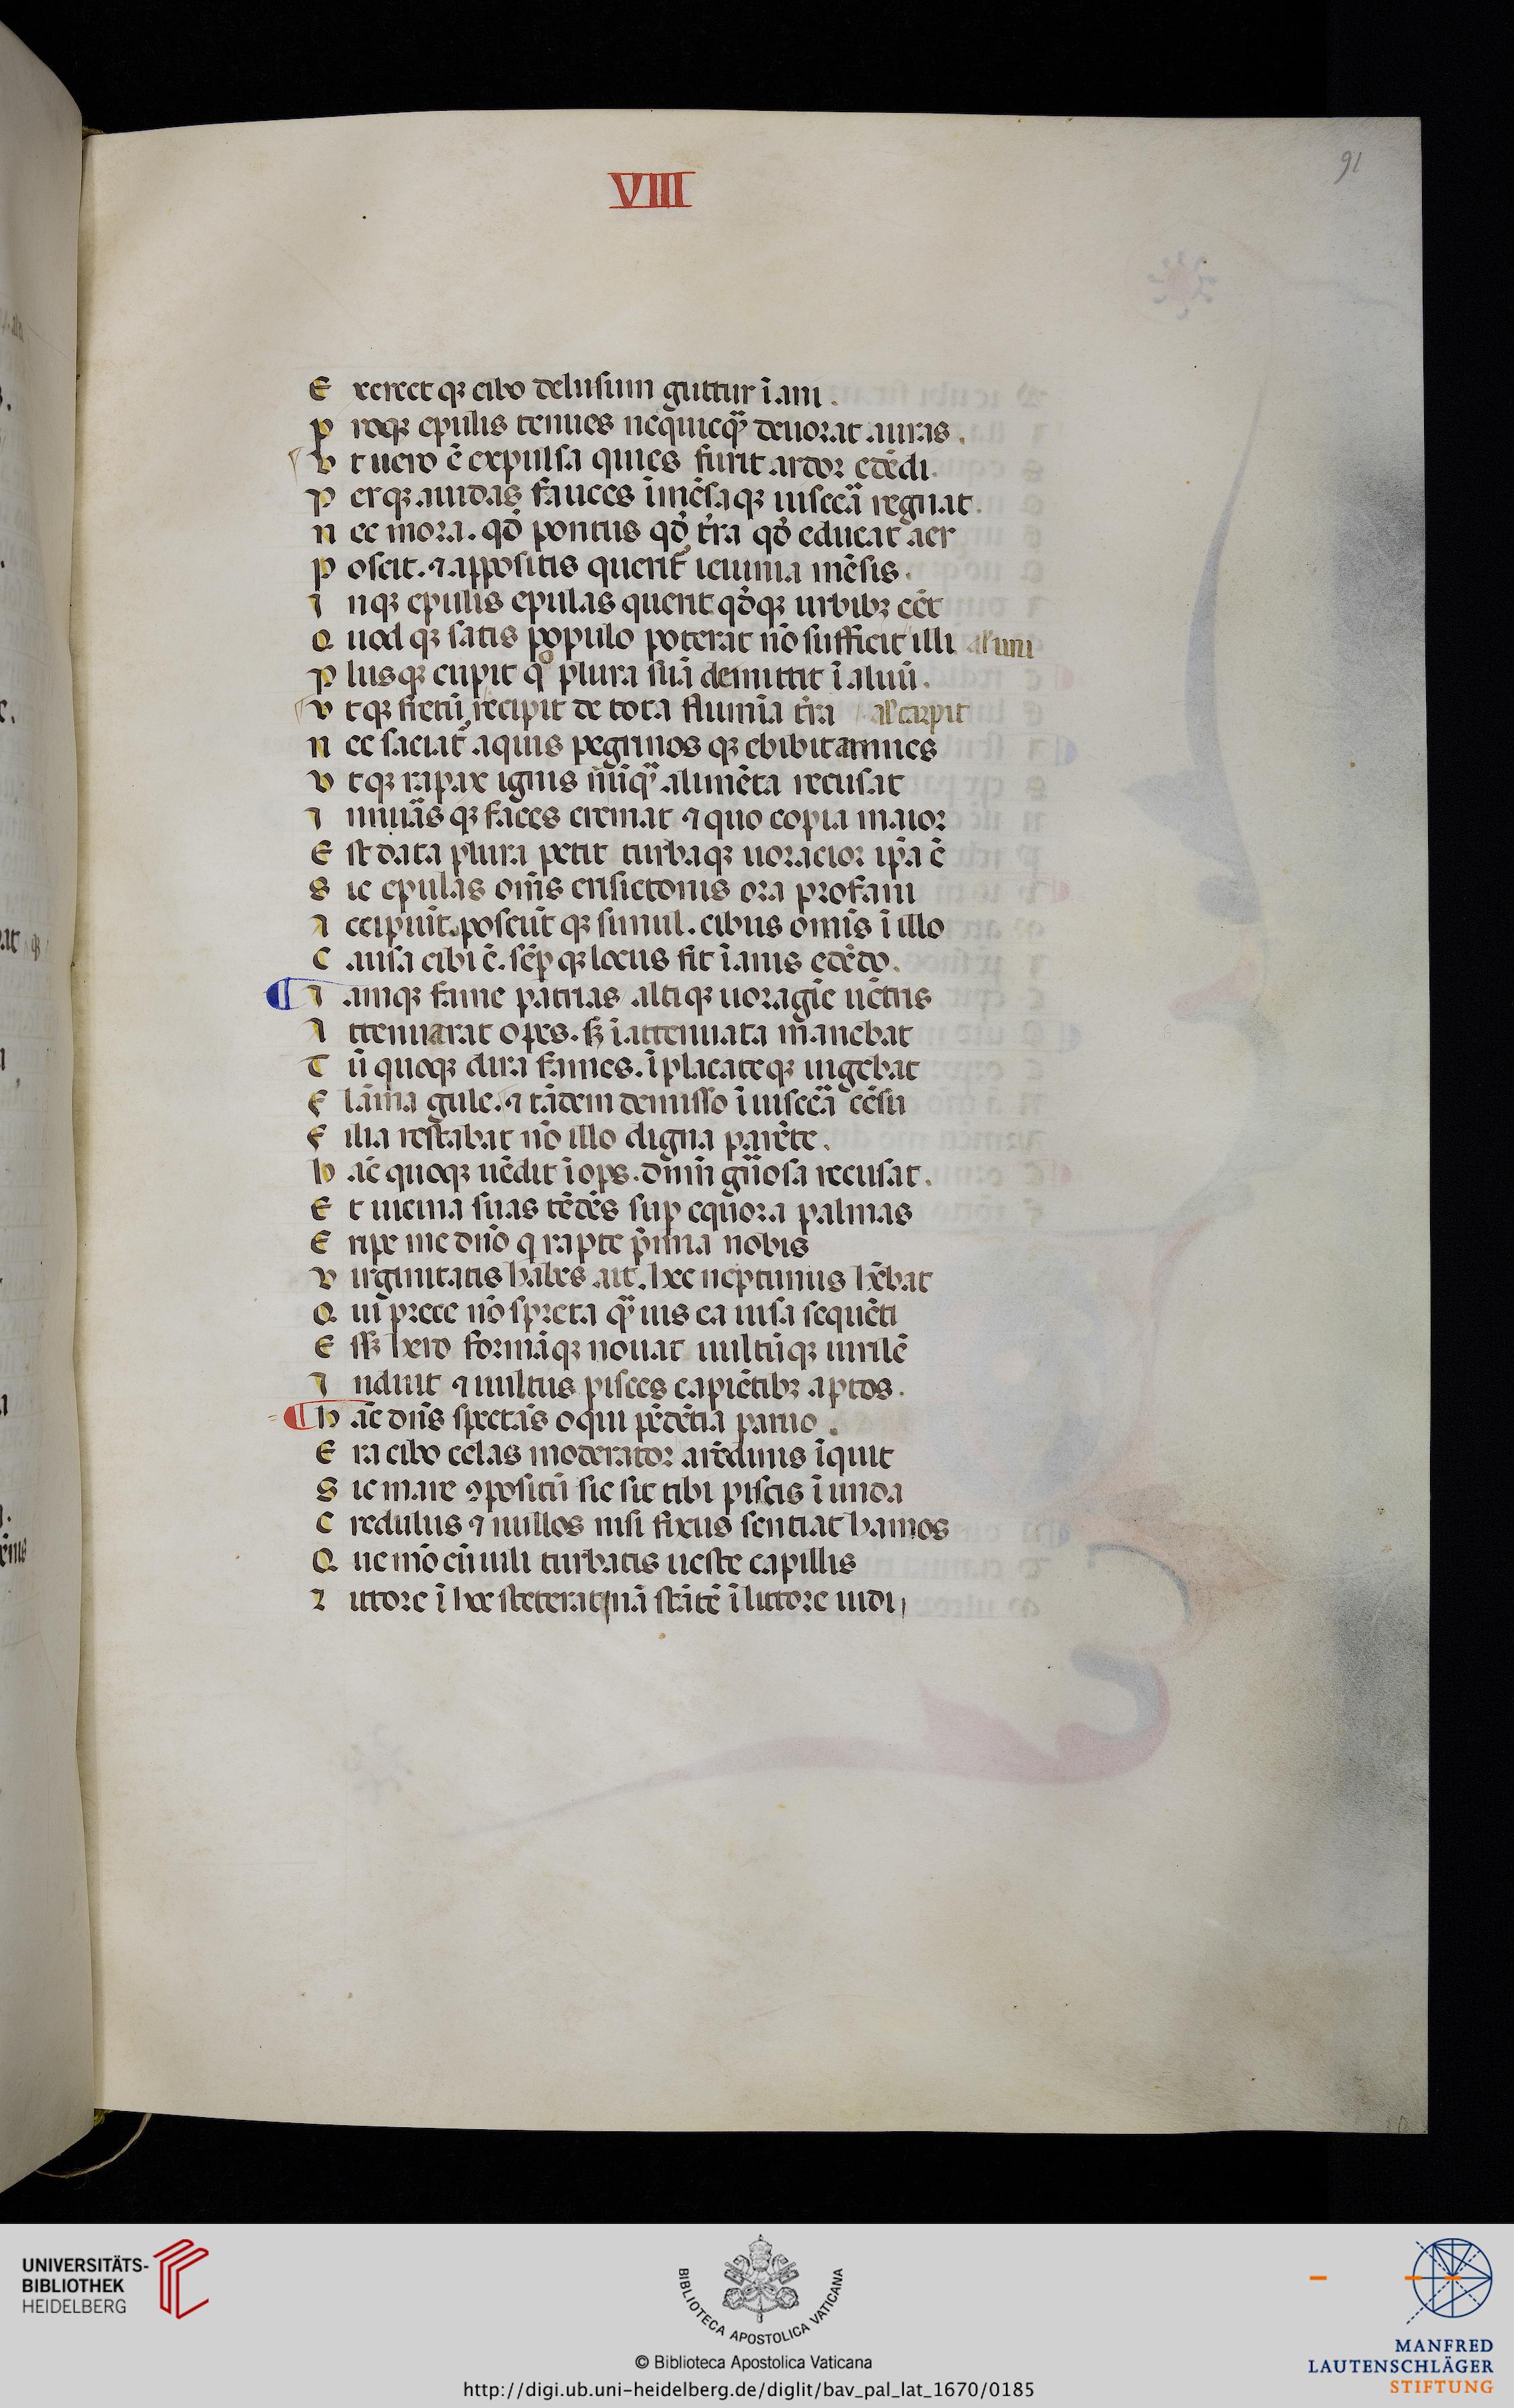 VIII
91
E xercet qꝫ cibo delusum guttur ĩani.
P roqꝫ epulis tenues neq̃uicq̃ deuorat auras.
V t uero ẽ expulsa quies furit ardor edẽdi.
P erqꝫ auidas fauces ĩmẽsaqꝫ uiscẽa regnat.
N ec mora. qð pontus qð t̃ra qð educat aer
P oscit. ⁊ appositis querit̃ ieiunia mẽsis.
I nqꝫ epulis epulas querit qðqꝫ urbibꝫ eẽt
Q uod qꝫ satis populo poterat nõ sufficit illi al uni
P lusqꝫ cupit qͦ plura suã demittit ĩ aluũ.
V tqꝫ fretũ recipit de tota flumĩa t̃ra al carpit
N ec saciat̃ aquis pegrinos qꝫ ebibit amnes
V tqꝫ rapax ignis nũq̃ alimẽta recusat
I nnũãs qꝫ faces cremat ⁊ quo copia maior
E st data plura petit turbaqꝫ uoracior ip̃a ẽ
S ic epulas om̃s erisictonis ora profani
A ccipiũt. poscũt qꝫ simul. cibus omĩs ĩ illo
C ausa cibi ẽ. sẽp qꝫ locus fit ĩanis edẽdo.
I amqꝫ fame patrias altiqꝫ uoragĩe uẽtris
A ttenuarat opes. sꝫ ĩattenuata manebat
T ũ quoqꝫ dira fames. ĩplacateqꝫ uigebat
F lãma gule. ⁊ tãdem demisso ĩ uiscẽa cẽsu
F ilia restabat nõ illo digna parẽte.
H ãc quoqꝫ uẽdit ĩops. dnm̃ gñosa recusat.
E t uicina suas tẽdẽs sup equora palmas
E ripe me dñõ q rapte p̃mia nobis
V irginitatis habes ait. hec neptunus hẽbat
Q ui p̃rece nõ spreta q̃uis ea uisa sequẽti
E ssꝫ hero formãqꝫ nouat uultũqꝫ uirilẽ
I nduit ⁊ uultus pisces capiẽtibꝫ aptos.
H ãc dñs spectãs o qui pẽdẽtia paruo.
E ra cibo celas moderator arũdinis ĩquit
S ic mare ꝯpositũ sic sit tibi piscis ĩ unda
C redulus ⁊ nullos nisi fixus sentiat hamos
Q ue mõ cũ uili turbatis ueste capillis
L ittore ĩ hoc steterat nã stãtẽ ĩ littore uidi
UNIVERSITÄTS-
BIBLIOTHEK
HEIDELBERG
BIBLIOTECA APOSTOLICA VATICANA
© Biblioteca Apostolica Vaticana
http://digi.ub.uni-heidelberg.de/diglit/bav_pal_lat_1670/0185
MANFRED
LAUTENSCHLÄGER
STIFTUNG